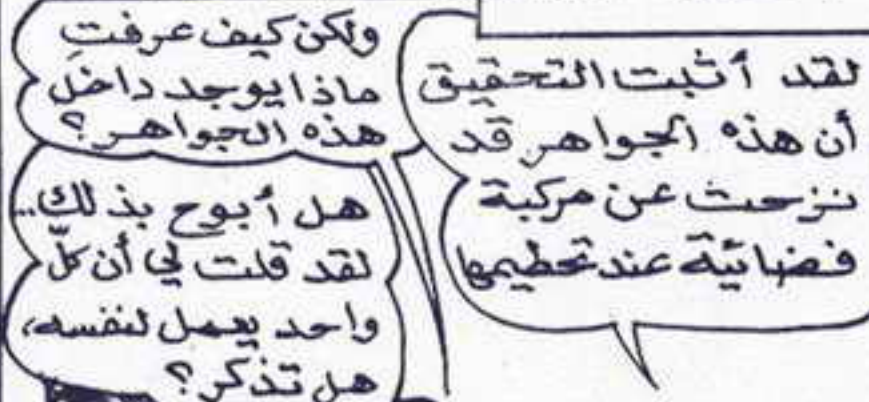 لقد أثبت التحقيق
أن هذه الجواهر قد
نزحت عن مركبة
فضائية عند تحطيمها
ولكن كيف عرفتِ
ماذا يوجد داخل
هذه الجواهر؟
هل أبوح بذلك..
لقد قلت لي أن كلّ
واحد يعمل لنفسه،
هل تذكر؟